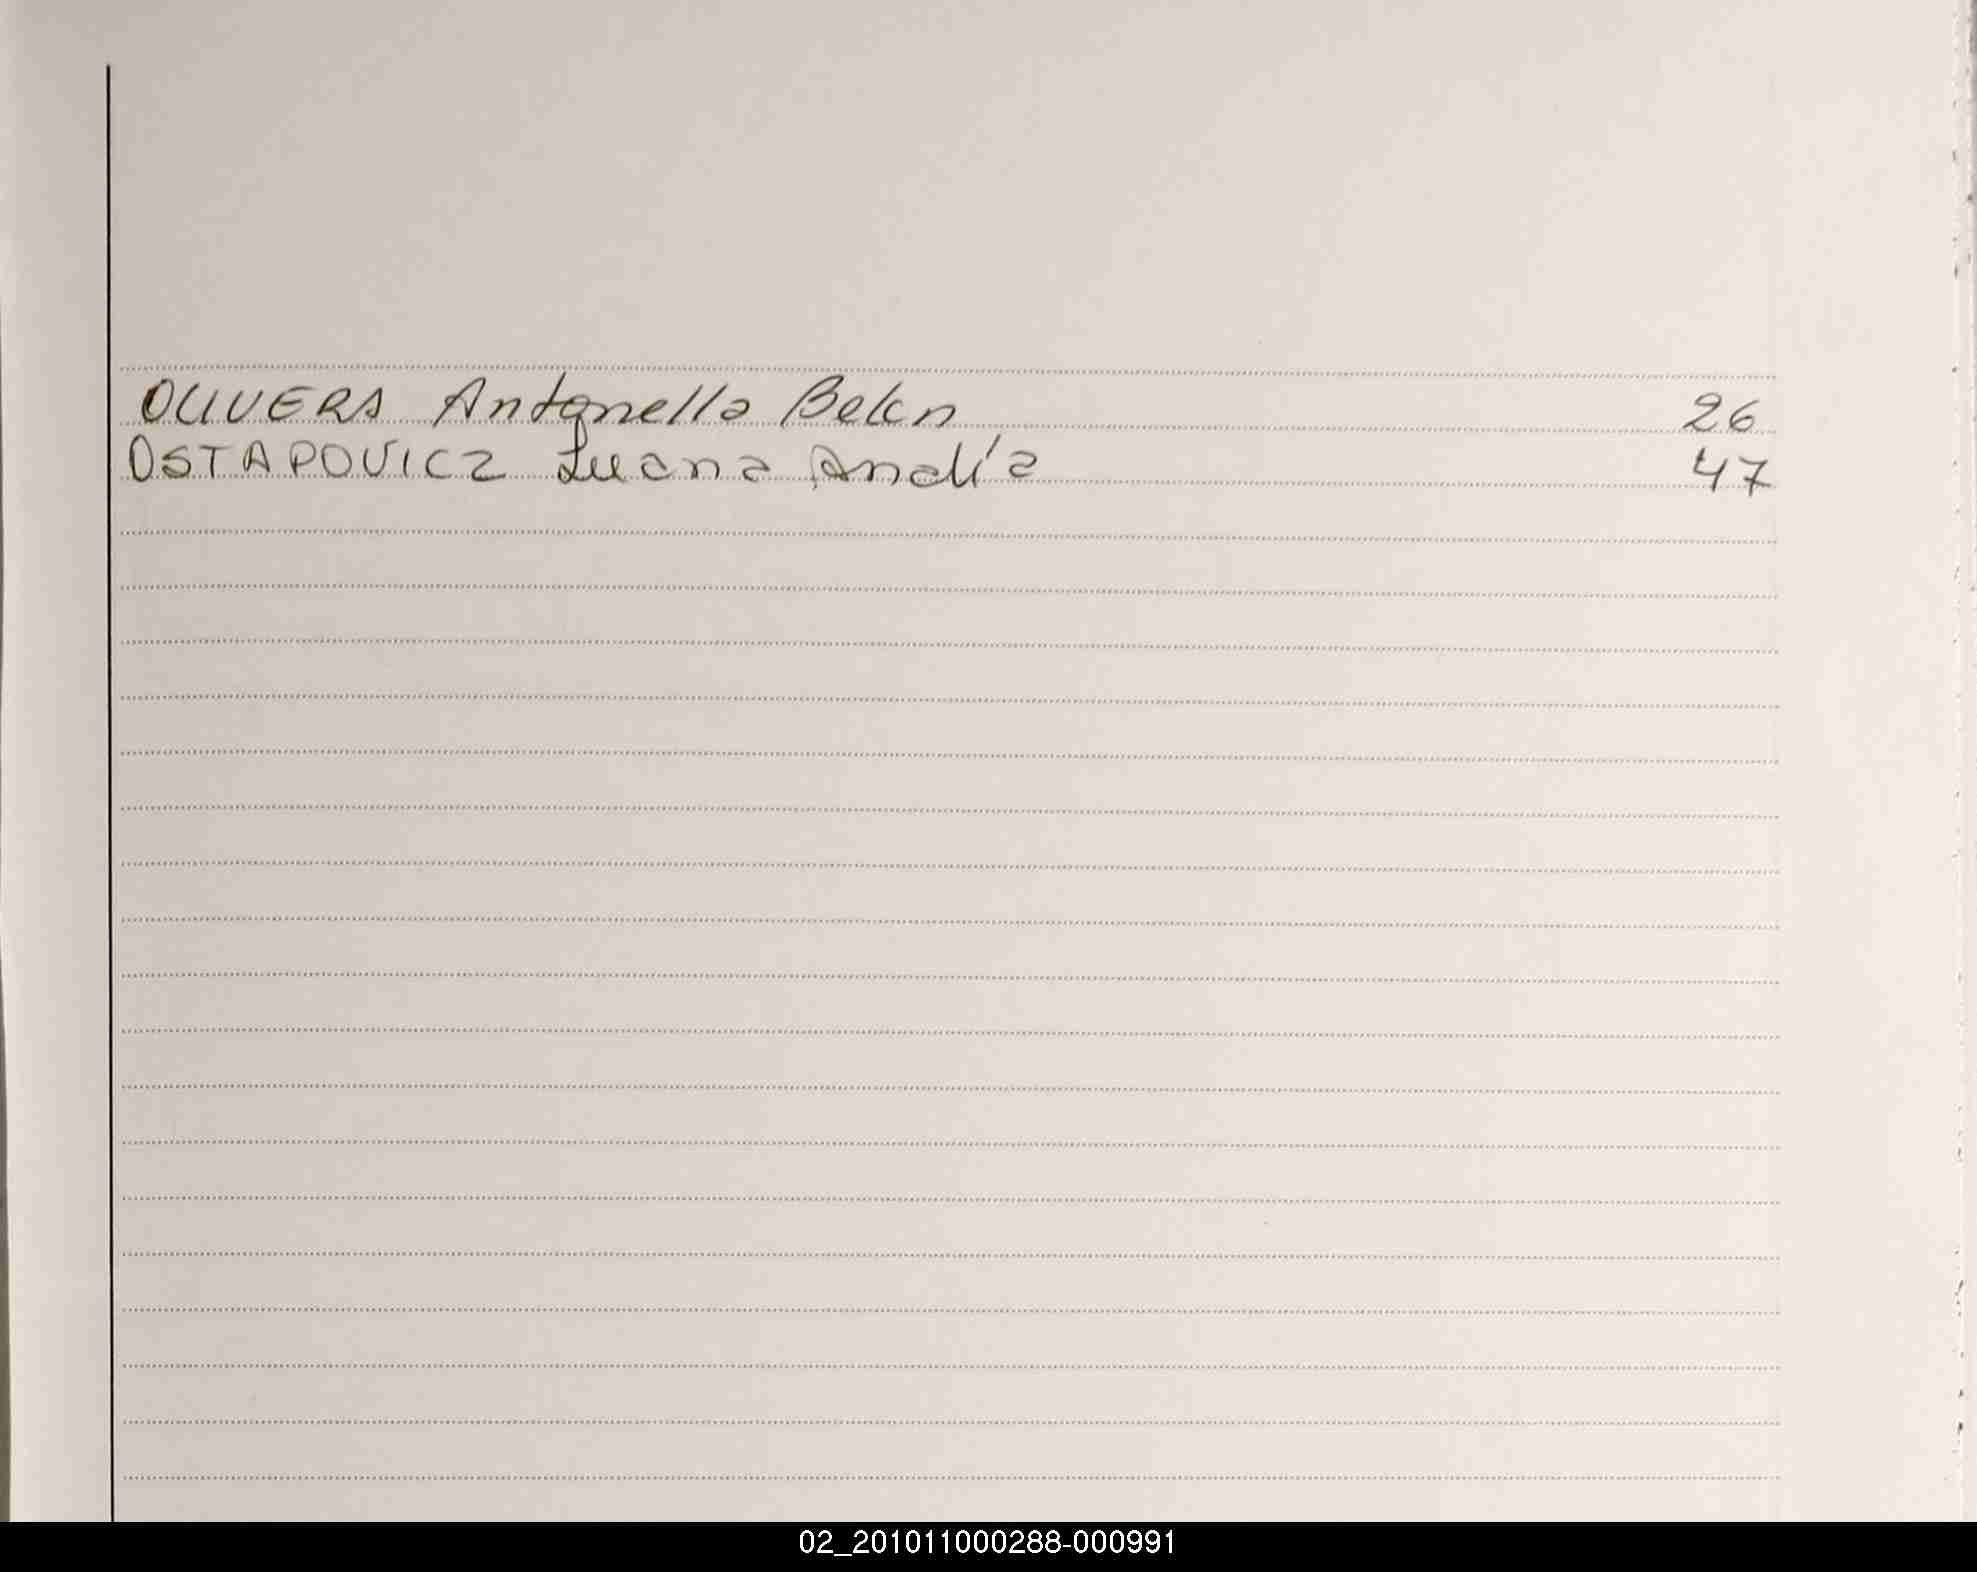 OLIVERA Antonella Belen 26
OSTAPOVICZ Luana Analía 47
02_201011000288-000991